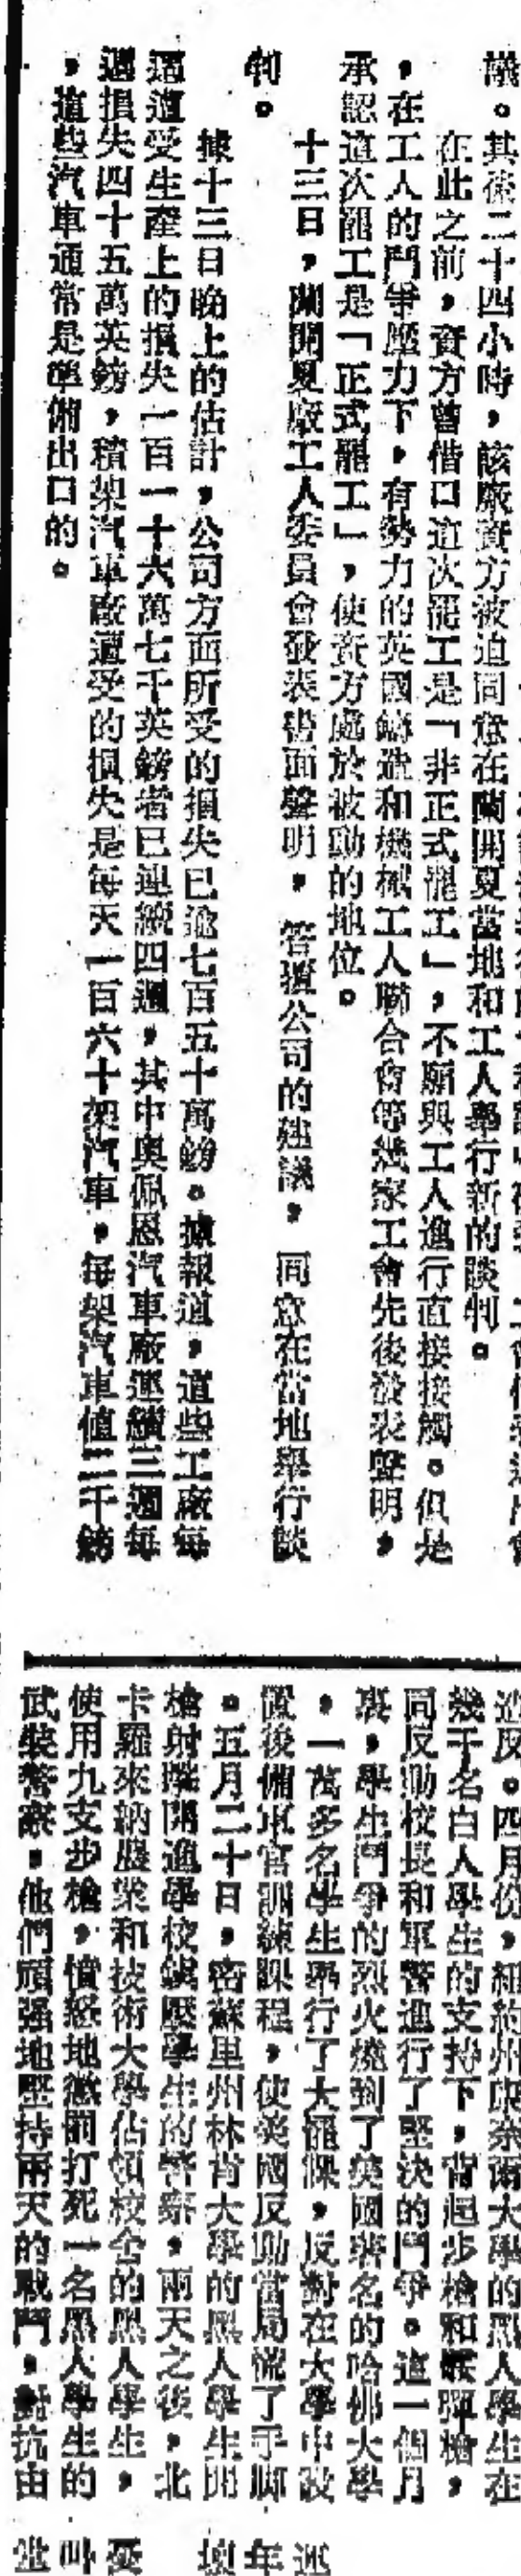 議。其後二十四小時，該廠資方被迫同意在蘭開夏當地和工人舉行新的談判。
在此之前，資方曾借口這次罷工是「非正式罷工」，不願與工人進行直接接觸。但是
，在工人的鬥爭壓力下，有勢力的英國鑄造和機械工人聯合會等幾家工會先後發表聲明，
承認這次罷工是「正式罷工」，使資方處於被動的地位。
十三日，蘭開夏廠工人委員會發表書面聲明，答復公司的建議，同意在當地舉行談
判。
據十三日晚上的估計，公司方面所受的損失已逾七百五十萬鎊。據報道，這些工廠每
週遭受生產上的損失一百一十六萬七千英鎊者已連續四週，其中奧佩恩汽車廠連續三週每
週損失四十五萬英鎊，積架汽車廠遭受的損失是每天一百六十架汽車，每架汽車值二千鎊
，這些汽車通常是準備出口的。
造反。四月份，紐約州康奈爾大學的黑人學生在
幾千名白人學生的支持下，背起步槍和散彈槍，
同反動校長和軍警進行了堅決的鬥爭。這一個月
裏，學生鬥爭的烈火燒到了美國著名的哈佛大學
，一萬多名學生舉行了大罷課，反對在大學中設
置後備軍官訓練課程，使美國反動當局慌了手脚
。五月二十日，密蘇里州林肯大學的黑人學生開
槍射擊開進學校鎮壓學生的警察，兩天之後，北
卡羅來納農業和技術大學佔領校舍的黑人學生，
使用九支步槍，憤怒地懲罰打死一名黑人學生的
武裝警察，他們頑强地堅持兩天的戰鬥，對抗由